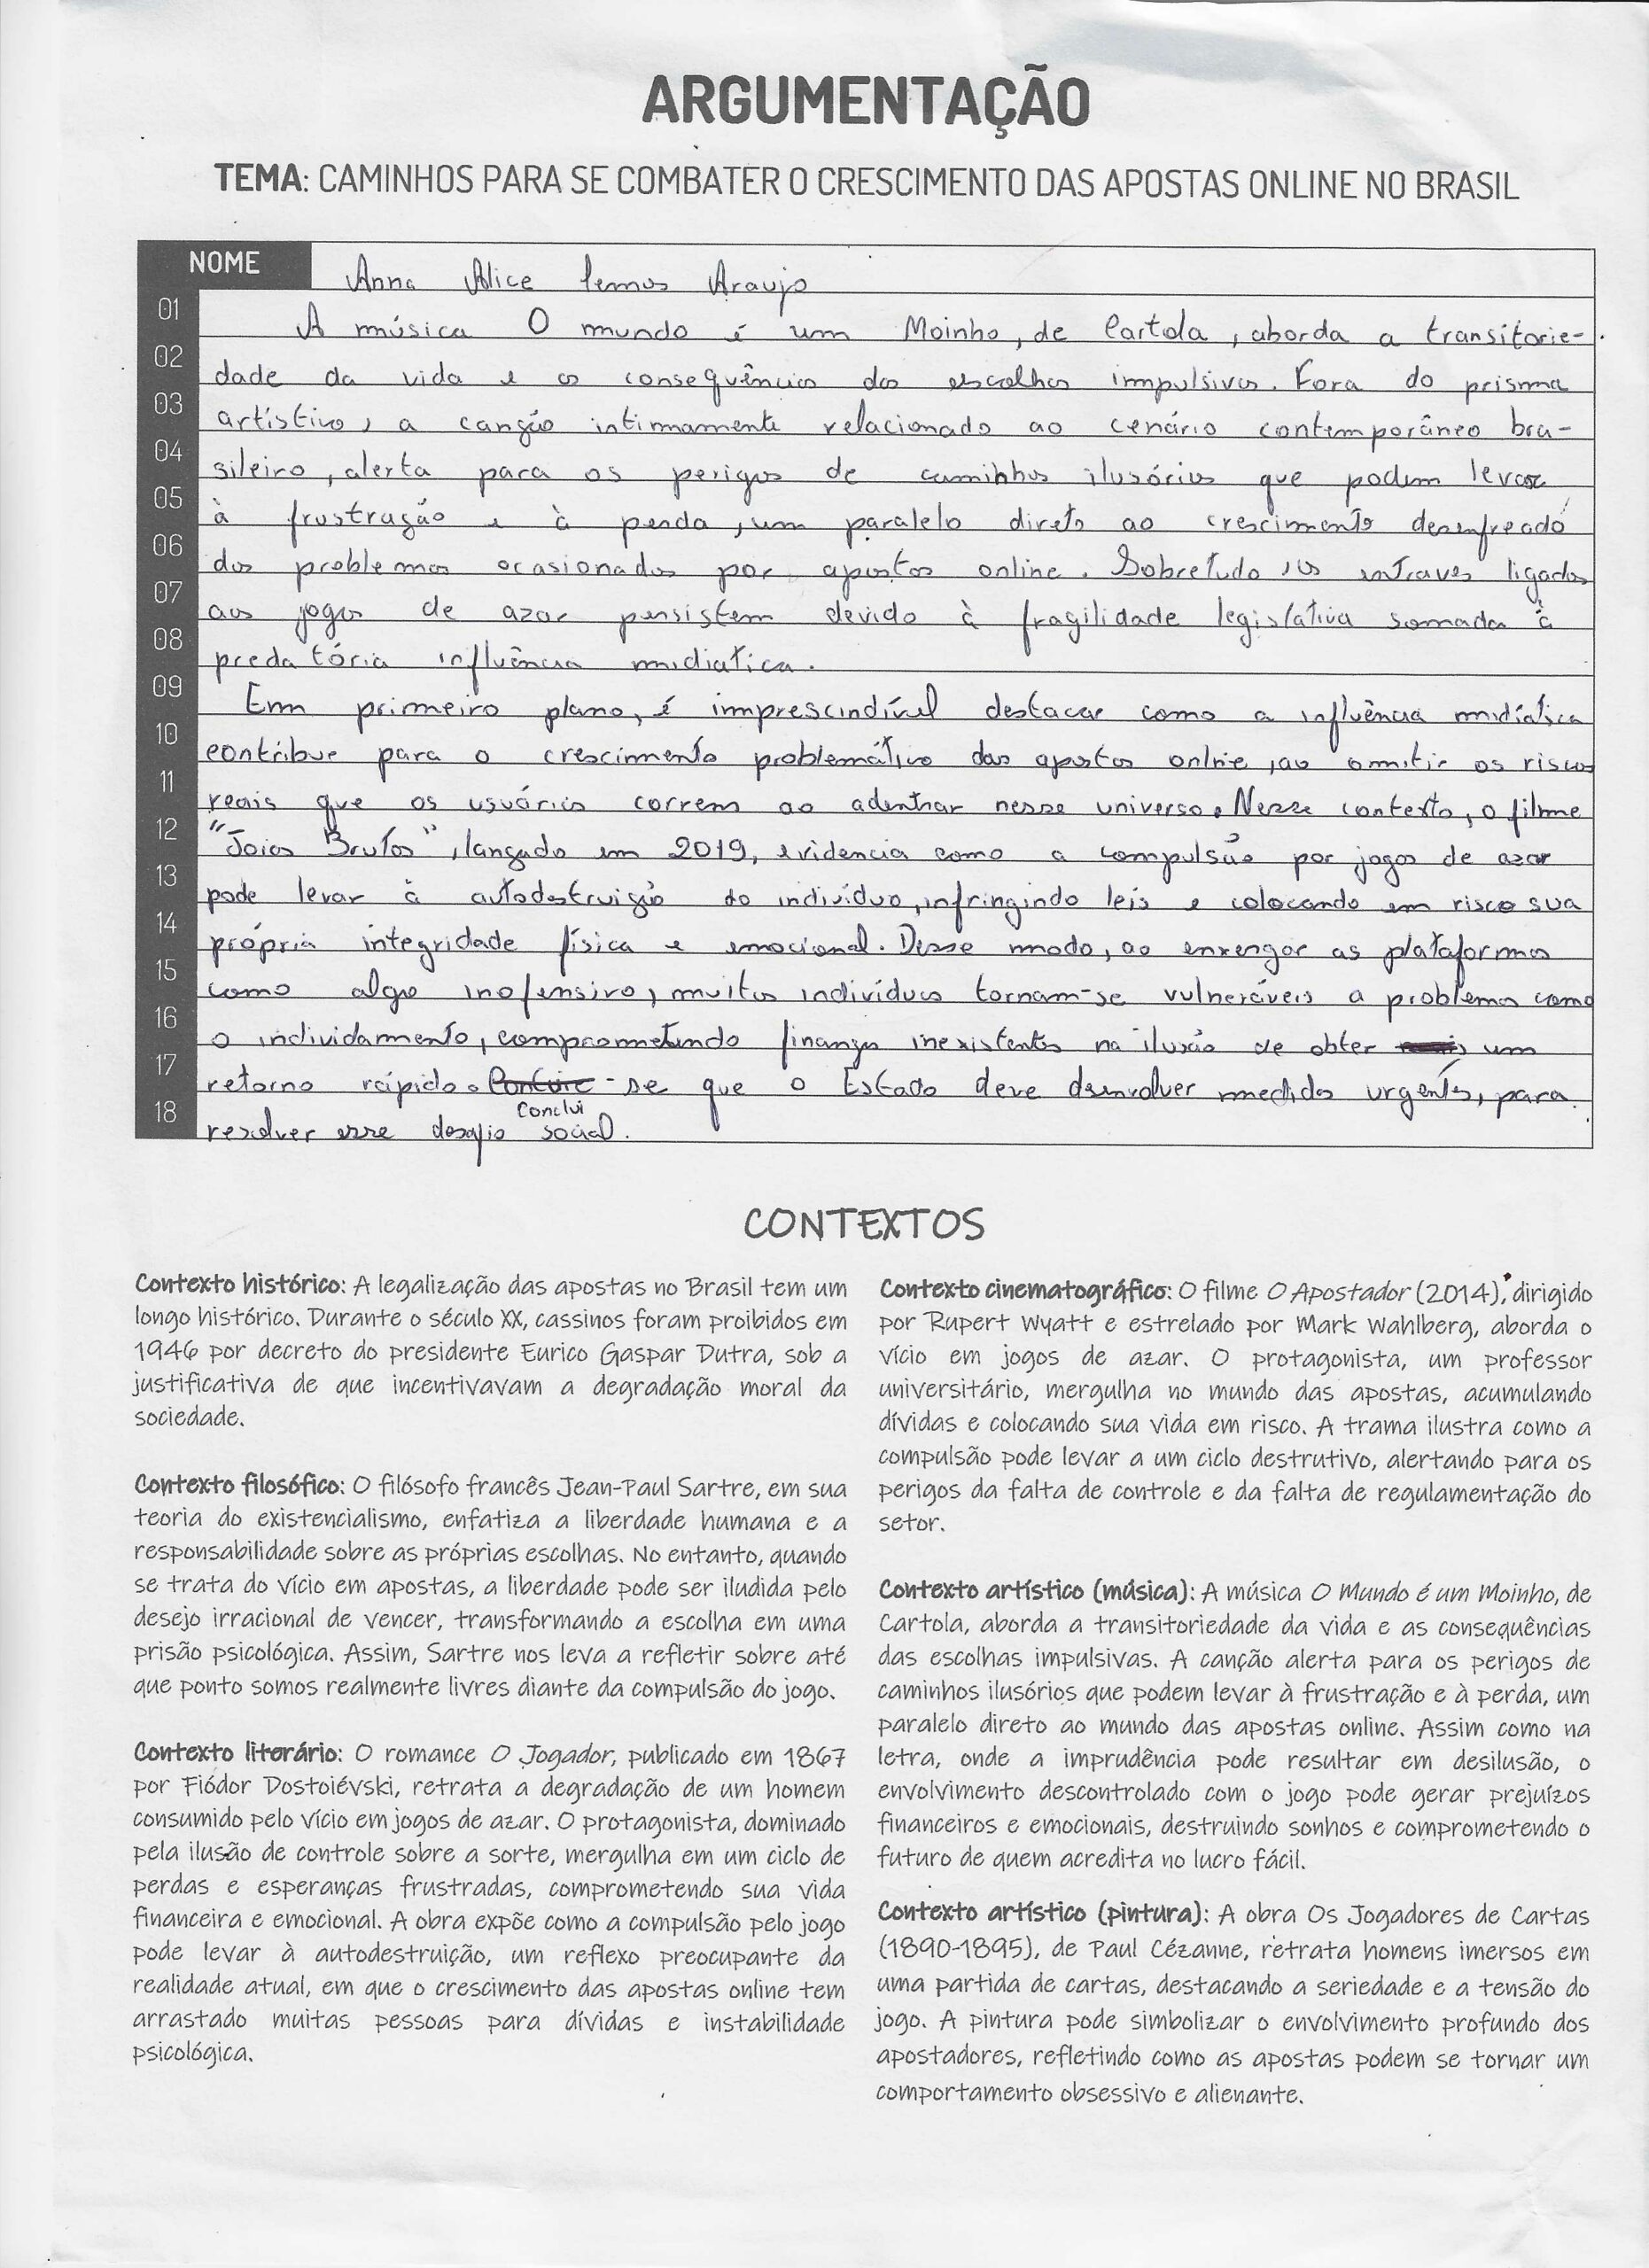 ARGUMENTAÇÃO
TEMA: CAMINHOS PARA SE COMBATER O CRESCIMENTO DAS APOSTAS ONLINE NO BRASIL
NOME Anna Alice Lemos Araujo
01 A música O mundo é um Moinho, de Cartola, aborda a transitorie-
02 dade da vida e as consequências das escolhas impulsivas. Fora do prisma
03 artístico, a canção intimamente relacionado ao cenário contemporâneo bra-
04 sileiro, alerta para os perigos de caminhos ilusórios que podem levar
05 à frustração e à perda, um paralelo direto ao crescimento desenfreado
06 dos problemas ocasionados por apostas online. Sobretudo, os entraves ligados
07 aos jogos de azar persistem devido à fragilidade legislativa somada à
08 predatória influência midiatica.
09 Em primeiro plano, é imprescindível destacar como a influência midíatica
10 contribue para o crescimento problemático das apostas online, ao omitir os riscos
11 reais que os usuários correm ao adentrar nesse universo. Nesse contexto, o filme
12 "Joias Brutas", lançado em 2019, evidencia como a compulsão por jogos de azar
13 pode levar à autodestruição do indivíduo, infringindo leis e colocando em risco sua
14 própria integridade física e emocional. Desse modo, ao enxergar as plataformas
15 como algo inofensivo, muitos indivíduos tornam-se vulneráveis a problemas como
16 o individamento, comprometendo finanças inexistentes na ilusão de obter um
17 retorno rápido. Conclui-se que o Estado deve desenvolver medidas urgentes, para
18 resolver esse desafio social.
CONTEXTOS
Contexto histórico: A legalização das apostas no Brasil tem um
longo histórico. Durante o século XX, cassinos foram proibidos em
1946 por decreto do presidente Eurico Gaspar Dutra, sob a
justificativa de que incentivavam a degradação moral da
sociedade.
Contexto filosófico: O filósofo francês Jean-Paul Sartre, em sua
teoria do existencialismo, enfatiza a liberdade humana e a
responsabilidade sobre as próprias escolhas. No entanto, quando
se trata do vício em apostas, a liberdade pode ser iludida pelo
desejo irracional de vencer, transformando a escolha em uma
prisão psicológica. Assim, Sartre nos leva a refletir sobre até
que ponto somos realmente livres diante da compulsão do jogo.
Contexto literário: O romance O Jogador, publicado em 1867
por Fiódor Dostoiévski, retrata a degradação de um homem
consumido pelo vício em jogos de azar. O protagonista, dominado
pela ilusão de controle sobre a sorte, mergulha em um ciclo de
perdas e esperanças frustradas, comprometendo sua vida
financeira e emocional. A obra expõe como a compulsão pelo jogo
pode levar à autodestruição, um reflexo preocupante da
realidade atual, em que o crescimento das apostas online tem
arrastado muitas pessoas para dívidas e instabilidade
psicológica.
Contexto cinematográfico: O filme O Apostador (2014), dirigido
por Rupert Wyatt e estrelado por Mark Wahlberg, aborda o
vício em jogos de azar. O protagonista, um professor
universitário, mergulha no mundo das apostas, acumulando
dívidas e colocando sua vida em risco. A trama ilustra como a
compulsão pode levar a um ciclo destrutivo, alertando para os
perigos da falta de controle e da falta de regulamentação do
setor.
Contexto artístico (música): A música O Mundo é um Moinho, de
Cartola, aborda a transitoriedade da vida e as consequências
das escolhas impulsivas. A canção alerta para os perigos de
caminhos ilusórios que podem levar à frustração e à perda, um
paralelo direto ao mundo das apostas online. Assim como na
letra, onde a imprudência pode resultar em desilusão, o
envolvimento descontrolado com o jogo pode gerar prejuízos
financeiros e emocionais, destruindo sonhos e comprometendo o
futuro de quem acredita no lucro fácil.
Contexto artístico (pintura): A obra Os Jogadores de Cartas
(1890-1895), de Paul Cézanne, retrata homens imersos em
uma partida de cartas, destacando a seriedade e a tensão do
jogo. A pintura pode simbolizar o envolvimento profundo dos
apostadores, refletindo como as apostas podem se tornar um
comportamento obsessivo e alienante.